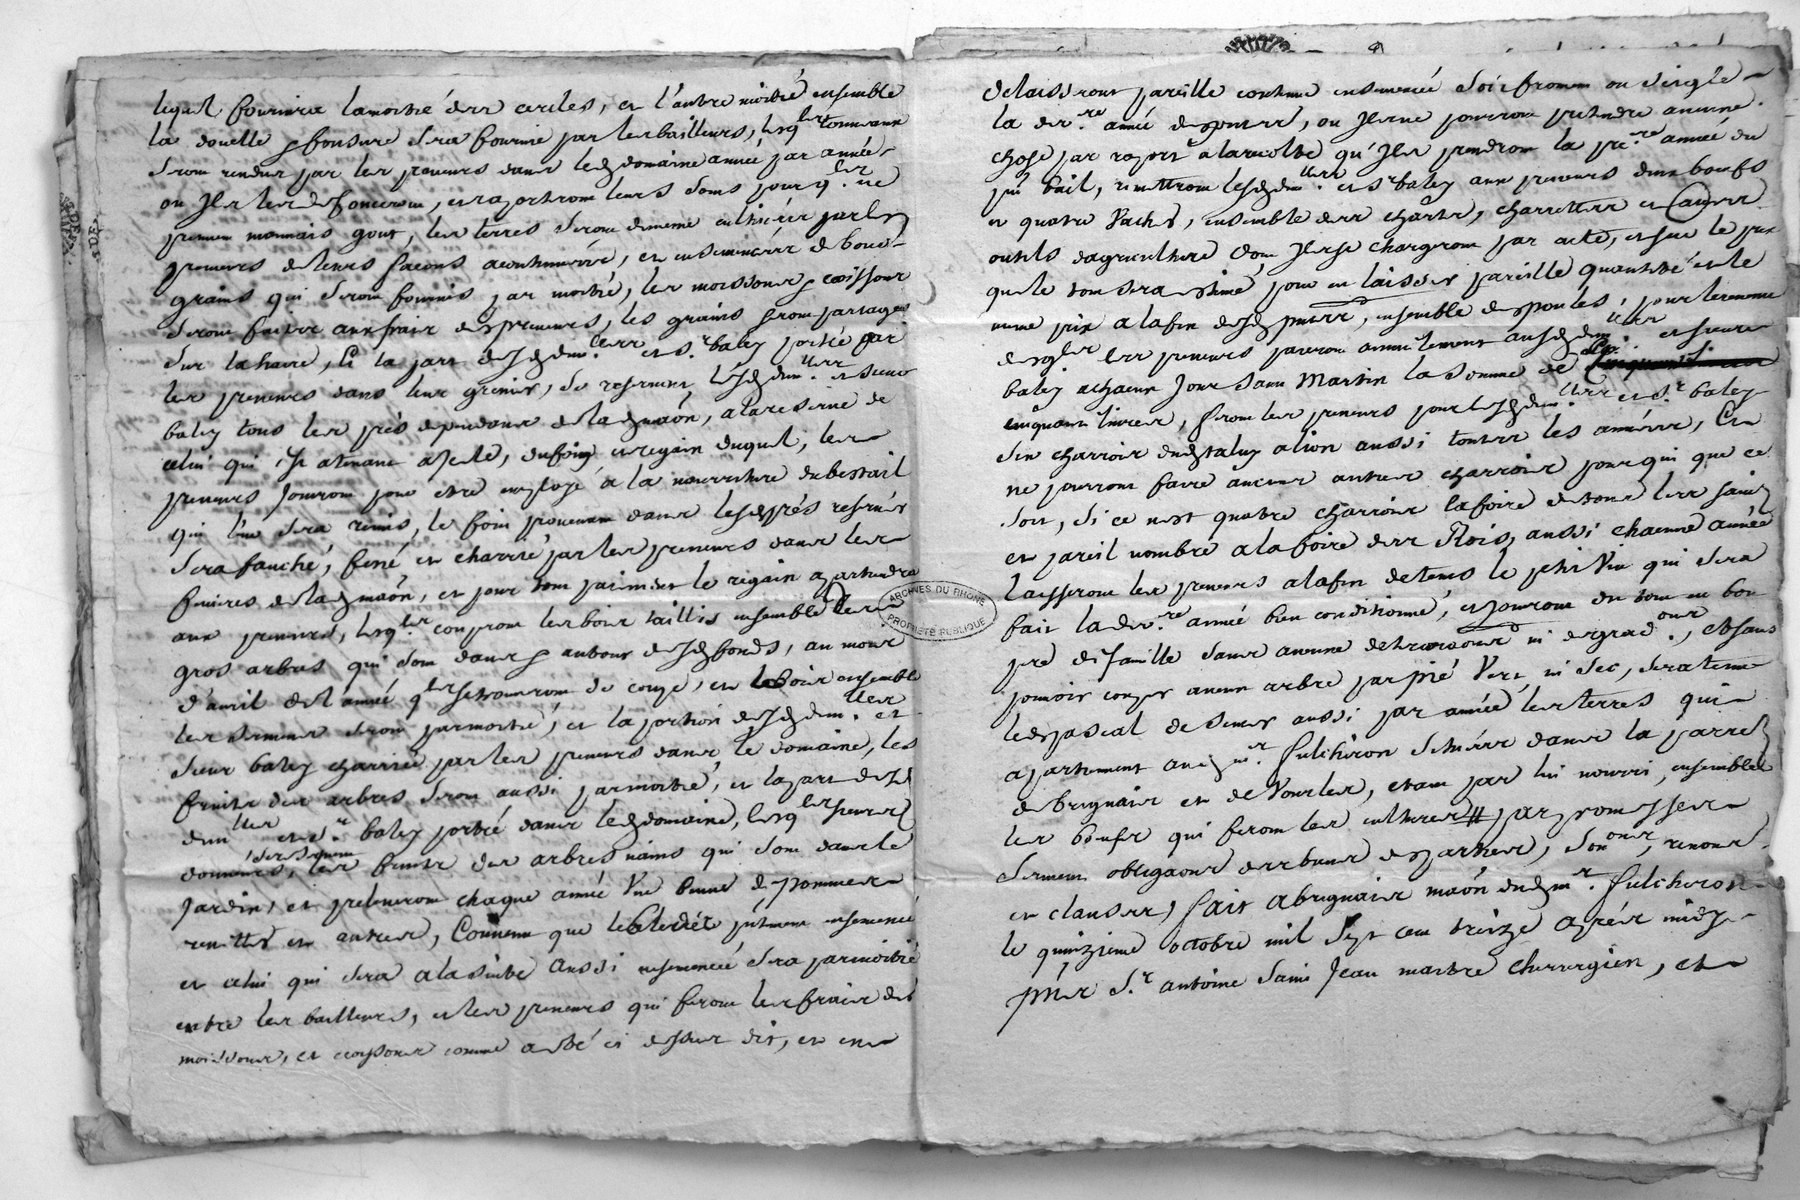 lequel fournira la moitié des cercles, et l'autre moitié ensemble
la douelle & fonsure sera fournie par les bailleurs, lesq.ls tonneaux
seront rendus par les preneurs dans led domaine année par année
ou Ils les defonceront, et raportront leurs fonds pour q.ls ne
prennent mauvais gout, les terres seront de meme cultivées par les
preneurs de leurs façons acoutumées, et ensemencées de bons
grains qui seront fournis par moitié, les moissons & coissons
seront faites aux frais des preneurs, les grains seront partagés
sur la haire, Et la part desd dem.lles et s.r baley portée par
les preneurs dans leur grenier, se reservent lesd dem.lles et sieur
baley tous les prés dependans de lad maôn, a la reserve de
celui qui est atenant a Icelle, du foin et regain duquel, les
preneurs Jouiront pour etre employé a la nourriture du bestail
qui leur sera remis, le foin provenant dans lesd prés reservés
sera fauché, fené et charrié par les preneurs dans les
feniers de lad maôn, et pour tout paiment le regain apartiendra
aux preneurs, lesq.ls couperont les bois taillis ensemble les
gros arbres qui sont dans & autour desd fonds, au mois
d'avril de l'année q.ls se trouveront de coupe, et le bois ensemble
les sermens seront par moitié, et la portion desd dem.lles et
sieur baley charriée par les preneurs dans le domaine, les
fruits des arbres seront aussi par moitié, et la part desd
dem.lles et s.r baley portée dans led domaine, lesq.ls sieurs
donneurs, les fruits des arbres nains qui sont dans le
Jardin, et preleveront chaque année Une benne de pommes
renettes et autres, Convenu que le bled été present ensemencé
et celui qui sera a la suite aussi ensemencé sera par moitié
entre les bailleurs, et les preneurs qui feront les frais des
moissons, et coissons comme a eté ci dessus dit, et en
delaisseront pareille contenue ensemencée soit froment ou seigle
la der.re année des present, ou Ils ne pourront pretendre aucune
chose par raport a la recolte qu'Ils prendront la pre.re année du
pnt bail, remettront lesd dem.lles et s.r baley aux preneurs deux boeufs
et quatre Vaches, ensemble des chars, charrettes et autres
outils d'agriculture dont Ils se chargeront par acte, et sur le prix
que le tout sera estimé, pour en laisser pareille quantité et le
meme prix a la fin desd pntes, ensemble des poules, pour le revenu
desq.ls les preneurs paieront annuelement auxd dem.lles et sieur
baley achacun Jour saint Martin la somme de
cinquante livres, feront les preneurs pour lesd dem.lles et s.r baley
Six charrois dud taluy a lion aussi toutes les années, Et
ne pourront faire aucuns autres charrois pour qui que ce
soit, si ce n'est quatre charrois la foire de tous les saints
et pareil nombre a la foire des Rois, aussi chacune année
laisseront les preneurs a la fin de tems le petit Vin qui sera
fait la der.re année bien conditionné, et Jouiront du tout en bon
pere de famille sans aucune deterioraôns ni degradaôns, et sans
pouvoir couper aucun arbre par pié Vert, ni sec, sera tenu
led pascal de semer aussi par année les terres qui
apartiennent aud m.r fulchiron situées dans la parroisse
de brignais et de Vourles, etant par lui nourri, ensemble
les boeufs qui feront les cultures # par promesses
serment obligaôns des biens desd parties, sou.ons, renon.ons
et clauses, fait a brignais maôn dud m.r fulchiron
le quinzieme octobre mil sept cent treize après midy
pnts s.r antoine saint Jean maitre chirurgien, et
ARCHIVES DU RHÔNE
PROPRIÉTÉ PUBLIQUE